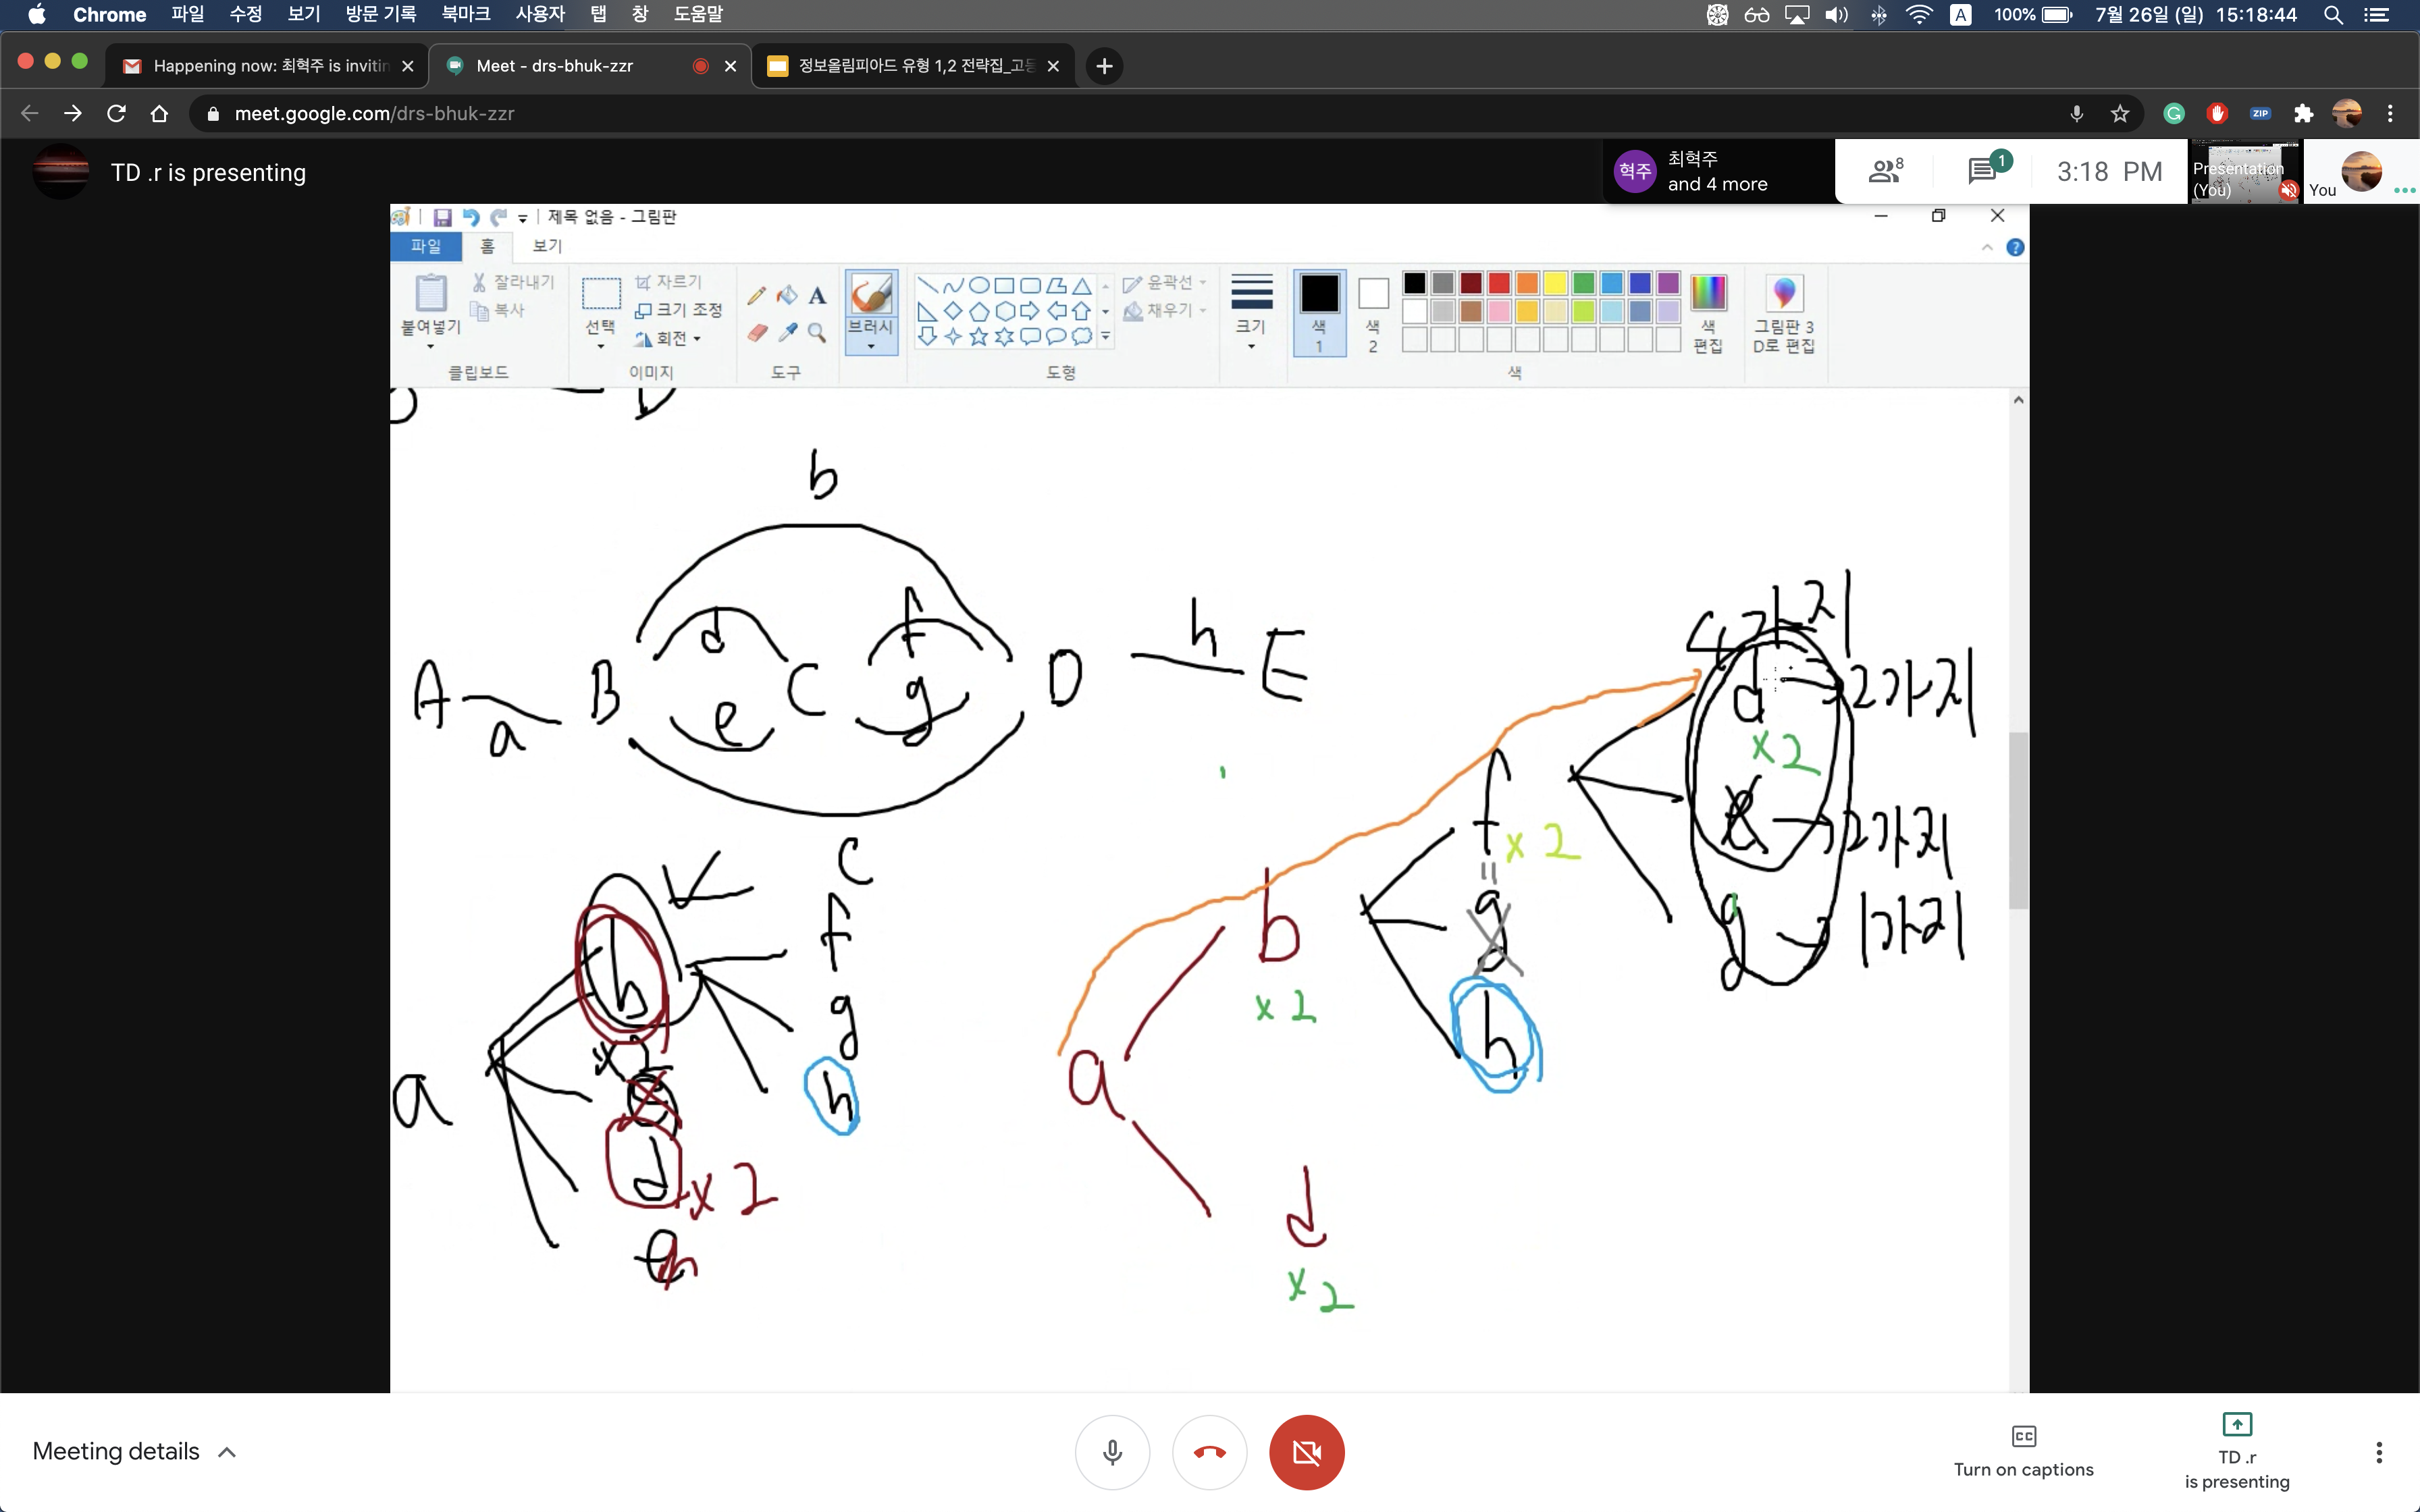 Chrome 파일 수정 보기 방문 기록 북마크 사용자 탭 창 도움말 A 100% 7월 26일 (일) 15:18:44
Happening now: 최혁주 is invitin
Meet - drs-bhuk-zzr
정보올림피아드 유형 1,2 전략집_고등
meet.google.com/drs-bhuk-zzr
ZIP
TD .r is presenting
혁주
최혁주
and 4 more
8
1
3:18 PM
Presentation
(You)
You
제목 없음 - 그림판
파일 홈 보기
붙여넣기
잘라내기
복사
클립보드
선택
자르기
크기 조정
회전
이미지
A
도구
브러시
윤곽선
채우기
도형
크기
색
1
색
2
색
편집
색
그림판 3
D로 편집
b
A a B d e C f g D h E
c
a
h
d x 2
f
g
h
a
b
x 2
d
x 2
f x 2
=
g
h
4가지
d 2가지
x 2
e 2가지
g 1가지
Meeting details
Turn on captions
TD .r
is presenting